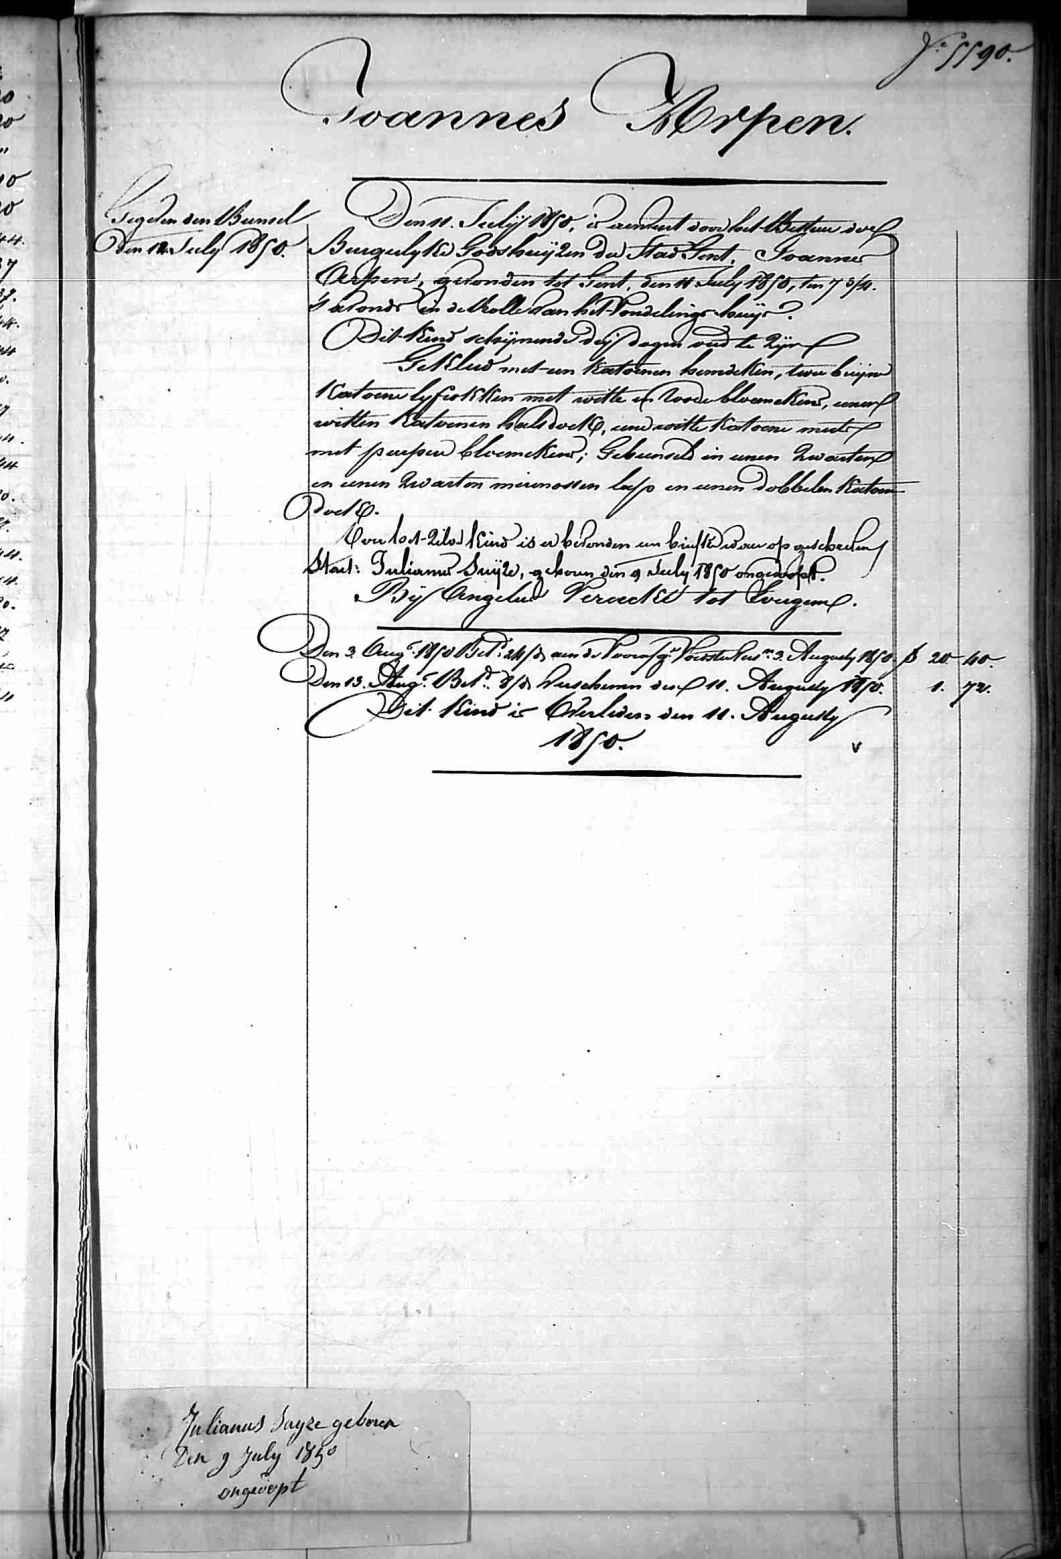 N.º 5590.
Joannes Arpen.
Den 11. Julÿ 1850, is erment door het Bestuur der
Burgerlyke Godshuÿzen der Stad Gent, Joannes
Arpen, gevonden tot Gent, den 11 July 1850, ten 7 3/4.
's avonds in de Rolle van het Vondelings huÿs.
Dit Kind schynende drÿ dagen oud te Zÿn
Gekleed met een Katoenen hemdeken, twee bruÿne
Katoene lyfrokken met witte en Roode bloemekens, eenen
witten Katoenen halsdoek, eene witte Katoene muts
met purper bloemekens; Gebunseld in eenen Zwarten
en eenen Zwarten merinossen lap en eenen dobbelen Katoen
doek.
Voor het Zelve Kind is er bevonden een briefke waer op geschreven
Staet: Julianus Suÿze, geboren den 9 July 1850 ongedoopt.
Bÿ Angelus Veraecke tot Evergem.
Den 3. Aug.t 1850 Bet.d 24/5 aen de 3. Augusty 1850 20 40
Den 13. Aug.t Bet.d 8/5 Verschenen den 11. Augusty 1850. 1. 72.
Dit Kind is Overleden den 11. Augusty
1850.
v
den Bunsel
Den 12 July 1850.
Julianus Sayze geboren
Den 9 July 1850
ongedopt